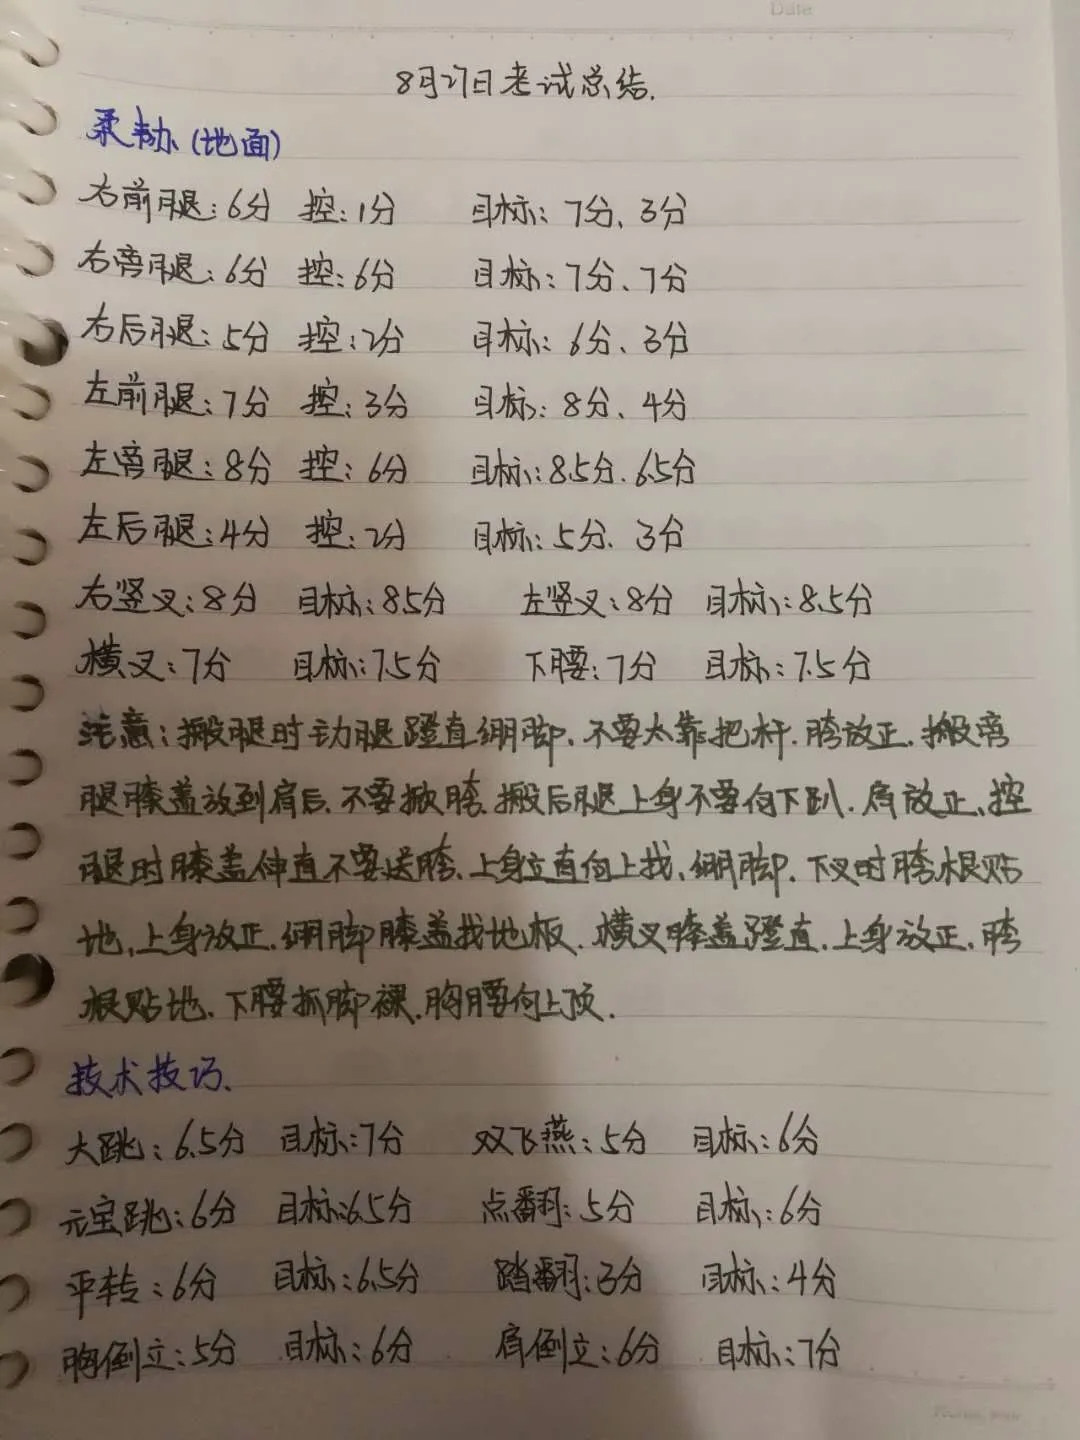 Date
8月27日考试总结.
柔韧(地面)
右前腿:6分 控:1分 目标:7分、3分
右旁腿:6分 控:6分 目标:7分、7分
右后腿:5分 控:2分 目标:6分、3分
左前腿:7分 控:3分 目标:8分、4分
左旁腿:8分 控:6分 目标:8.5分.6.5分
左后腿:4分 控:2分 目标:5分、3分
右竖叉:8分 目标:8.5分 左竖叉:8分 目标:8.5分
横叉:7分 目标:7.5分 下腰:7分 目标:7.5分
注意:搬腿时动腿蹬直绷脚.不要太靠把杆.胯放正.搬旁
腿膝盖放到肩后.不要掀胯.搬后腿上身不要向下趴.肩放正、控
腿时膝盖伸直不要送胯、上身立直向上找、绷脚.下叉时胯根贴
地、上身放正.绷脚膝盖找地板.横叉膝盖蹬直.上身放正.胯
根贴地.下腰抓脚裸.胸腰向上顶.
技术技巧.
大跳:6.5分 目标:7分 双飞燕:5分 目标:6分
元宝跳:6分 目标:6.5分 点翻:5分 目标:6分
平转:6分 目标:6.5分 踏翻:3分 目标:4分
胸倒立:5分 目标:6分 肩倒立:6分 目标:7分